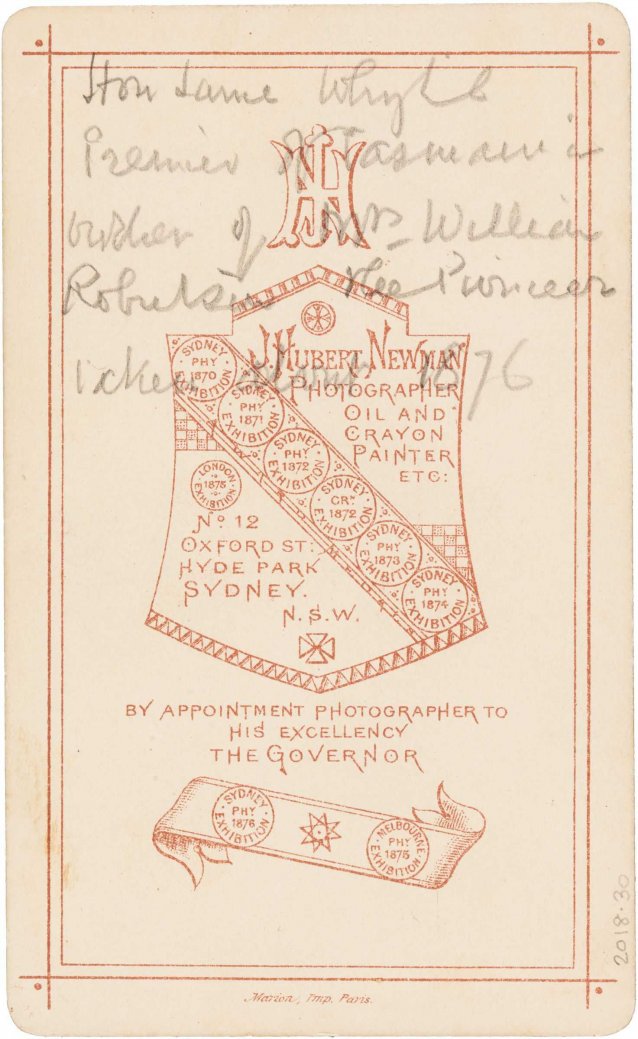 Hon Jame Whyte
Premier of Tasmania
brother of Mrs William
Robertson the Pioneer
taken about 1876
JHN
J. HUBERT NEWMAN
PHOTOGRAPHER
OIL AND
CRAYON
PAINTER
ETC:
SYDNEY EXHIBITION PHY 1870
SYDNEY EXHIBITION PHY 1871
SYDNEY EXHIBITION PHY 1872
SYDNEY EXHIBITION CRN 1872
SYDNEY EXHIBITION PHY 1873
SYDNEY EXHIBITION PHY 1874
LONDON EXHIBITION 1873
No 12
OXFORD ST:
HYDE PARK
SYDNEY.
N.S.W.
BY APPOINTMENT PHOTOGRAPHER TO
HIS EXCELLENCY
THE GOVERNOR
SYDNEY EXHIBITION PHY 1876
MELBOURNE EXHIBITION PHY 1875
Marion, Imp. Paris.
2018.30